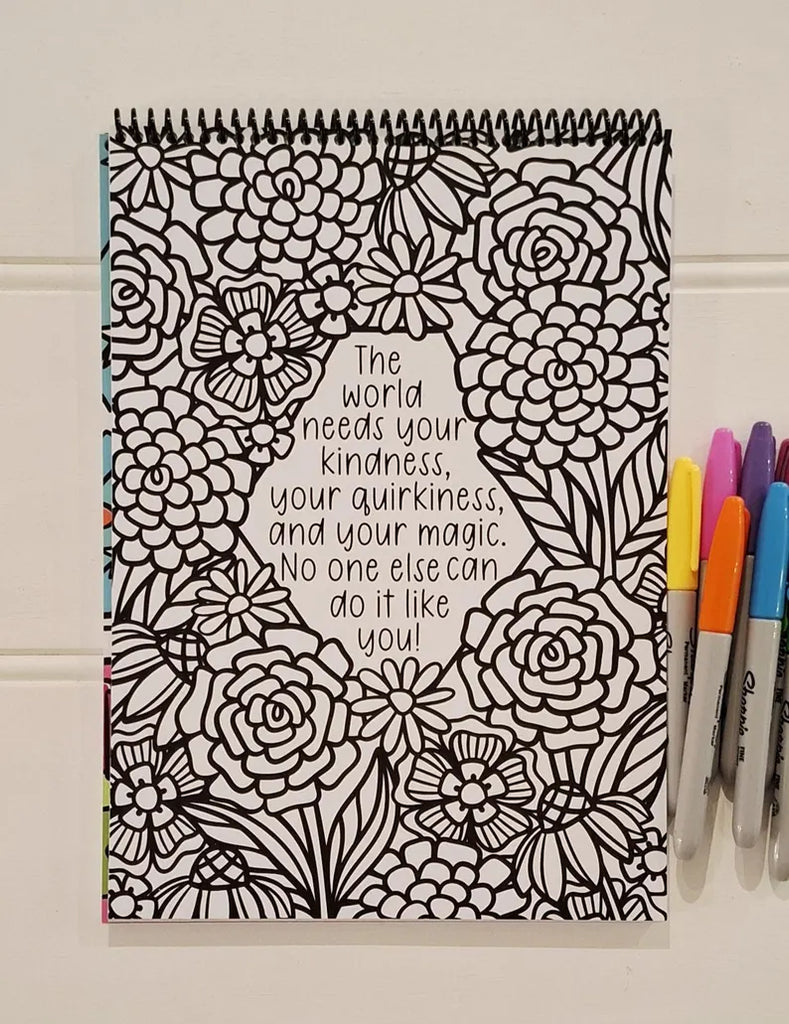 The
world
needs your
kindness,
your quirkiness,
and your magic.
No one else can
do it like
you!
Sharpie
FINE
Sharpie